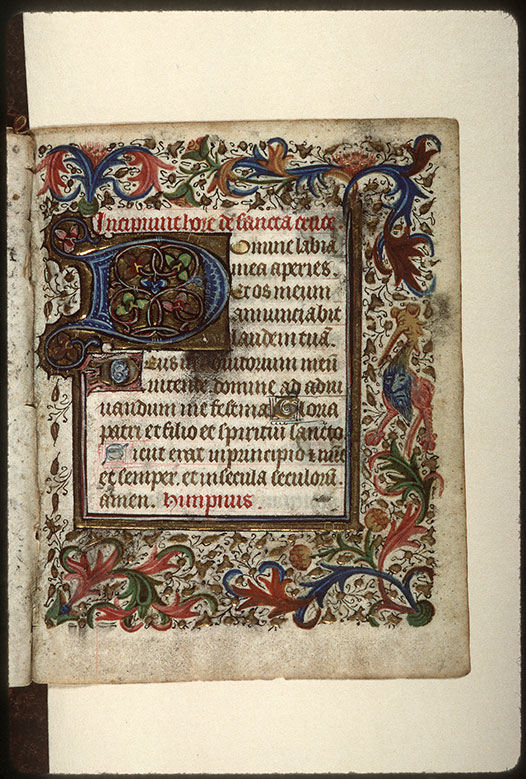 Incipiunt hore de sancta cruce
Domine labia
mea aperies.
Et os meum
annunciabit
laudem tuā.
Deus in adiutorium meū
intende. domine ad adiu
uandum me festina Gloria
patri et filio et spiritui sancto.
Sicut erat in principio ⁊ nūc
et semper. et in secula seculorū
amen. Himpnus.